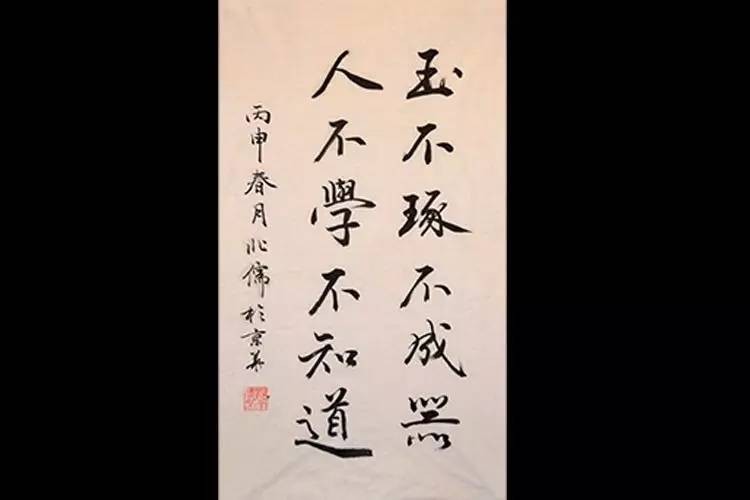 玉不琢不成器
人不學不知道
丙申春月北儒於京華